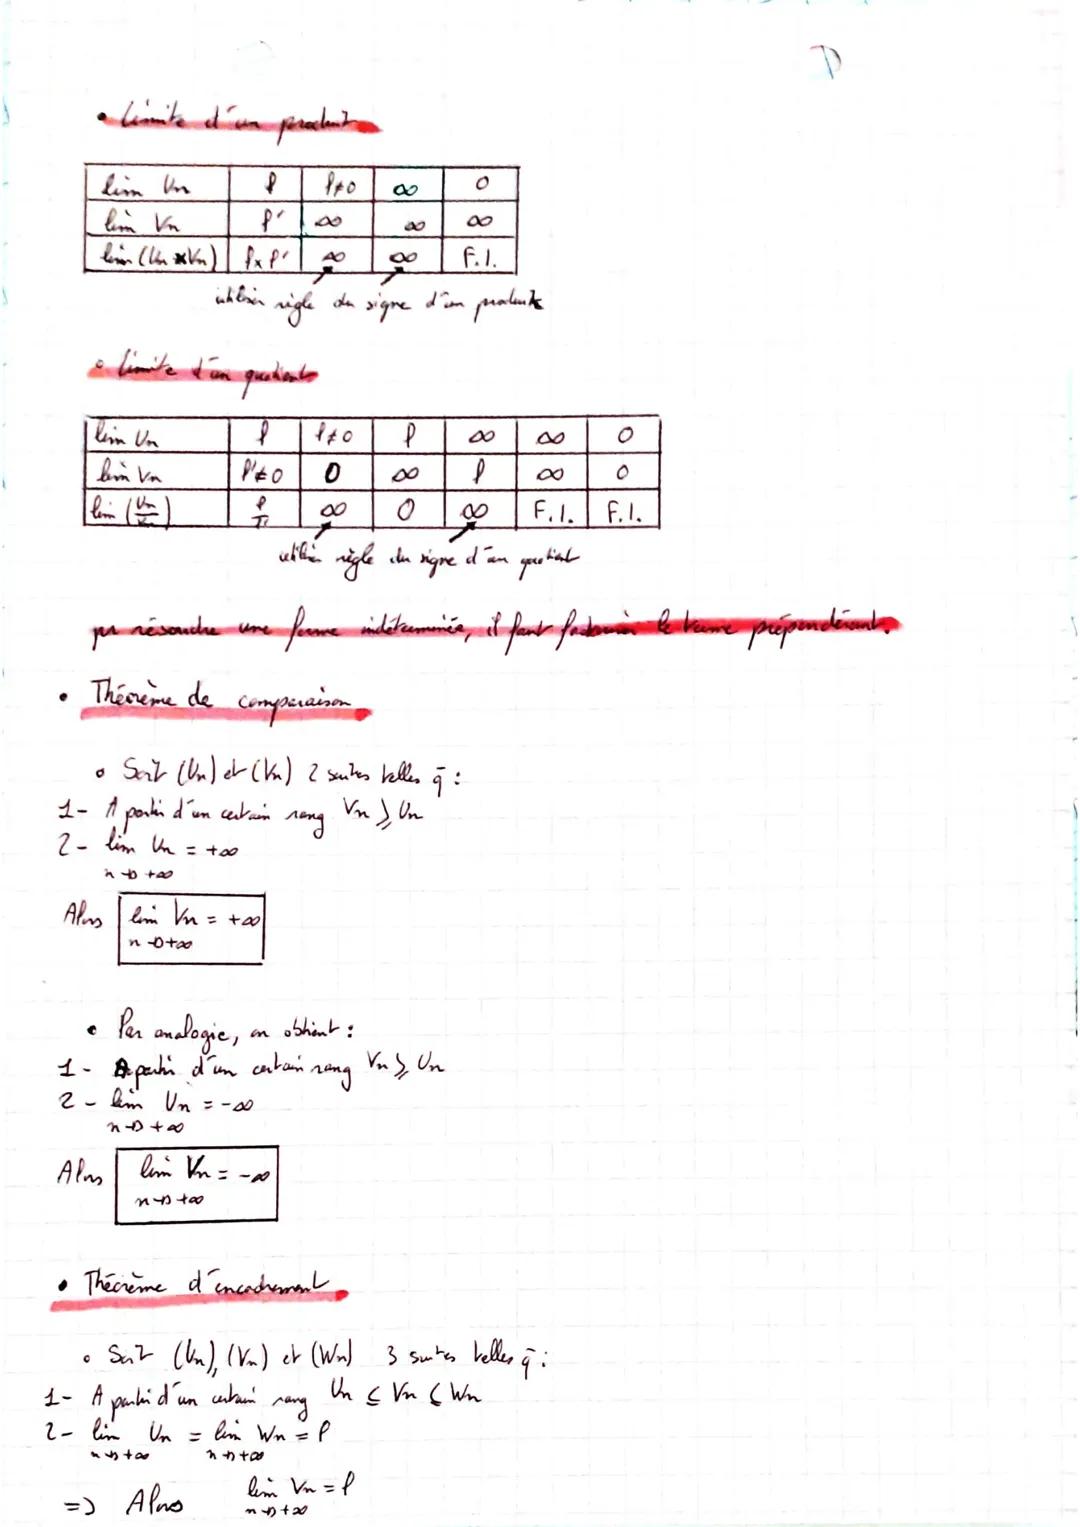 • Limite d'un produit
lim Un | l | l≠0 | ∞ | 0
lim Vn | l' | ∞ | ∞ | ∞
lim (Un×Vn) | l×l' | ∞ | ∞ | F.I.
utiliser règle du signe d'un produit
• Limite d'un quotient
lim Un | l | l≠0 | l | ∞ | ∞ | 0
lim Vn | l'≠0 | 0 | ∞ | l | ∞ | 0
lim (Un/Vn) | l/l' | ∞ | 0 | ∞ | F.I. | F.I.
utiliser règle du signe d'un quotient
pr résoudre une forme indéterminée, il faut factoriser le terme prépondérant.
• Théorème de comparaison
• Soit (Un) et (Vn) 2 suites telles q̄ :
1- A partir d'un certain rang Vn ⩾ Un
2- lim Un = +∞
n→+∞
Alors lim Vn = +∞
n→+∞
• Par analogie, on obtient :
1- A partir d'un certain rang Vn ⩾ Un
2- lim Un = -∞
n→+∞
Alors lim Vn = -∞
n→+∞
• Théorème d'encadrement
• Soit (Un), (Vn) et (Wn) 3 suites telles q̄ :
1- A partir d'un certain rang Un ⩽ Vn ⩽ Wn
2- lim Un = lim Wn = l
n→+∞ n→+∞
=> Alors lim Vn = l
n→+∞